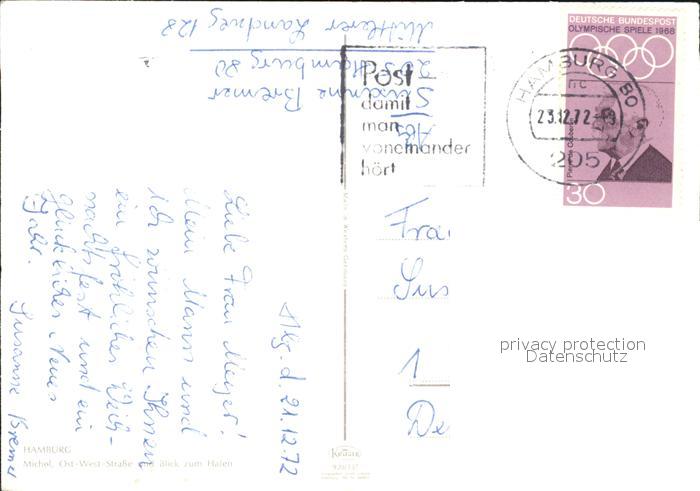 Abs.
Susanne Bremer
205 Hamburg 80
Mittlerer Landweg 128
Hbg. d. 21.12.72
Liebe Frau Meyer!
Mein Mann und
ich wünschen Ihnen
ein fröhliches Weih-
nachtsfest und ein
glückliches Neues
Jahr.
Susanne Bremer
HAMBURG
Michel, Ost-West-Straße und Blick zum Hafen
Krüger
Post
damit
man
voneinander
hört
HAMBURG 80
23.12.72
205
DEUTSCHE BUNDESPOST
OLYMPISCHE SPIELE 1968
30
Frau
Sus
1
privacy protection
Datenschutz